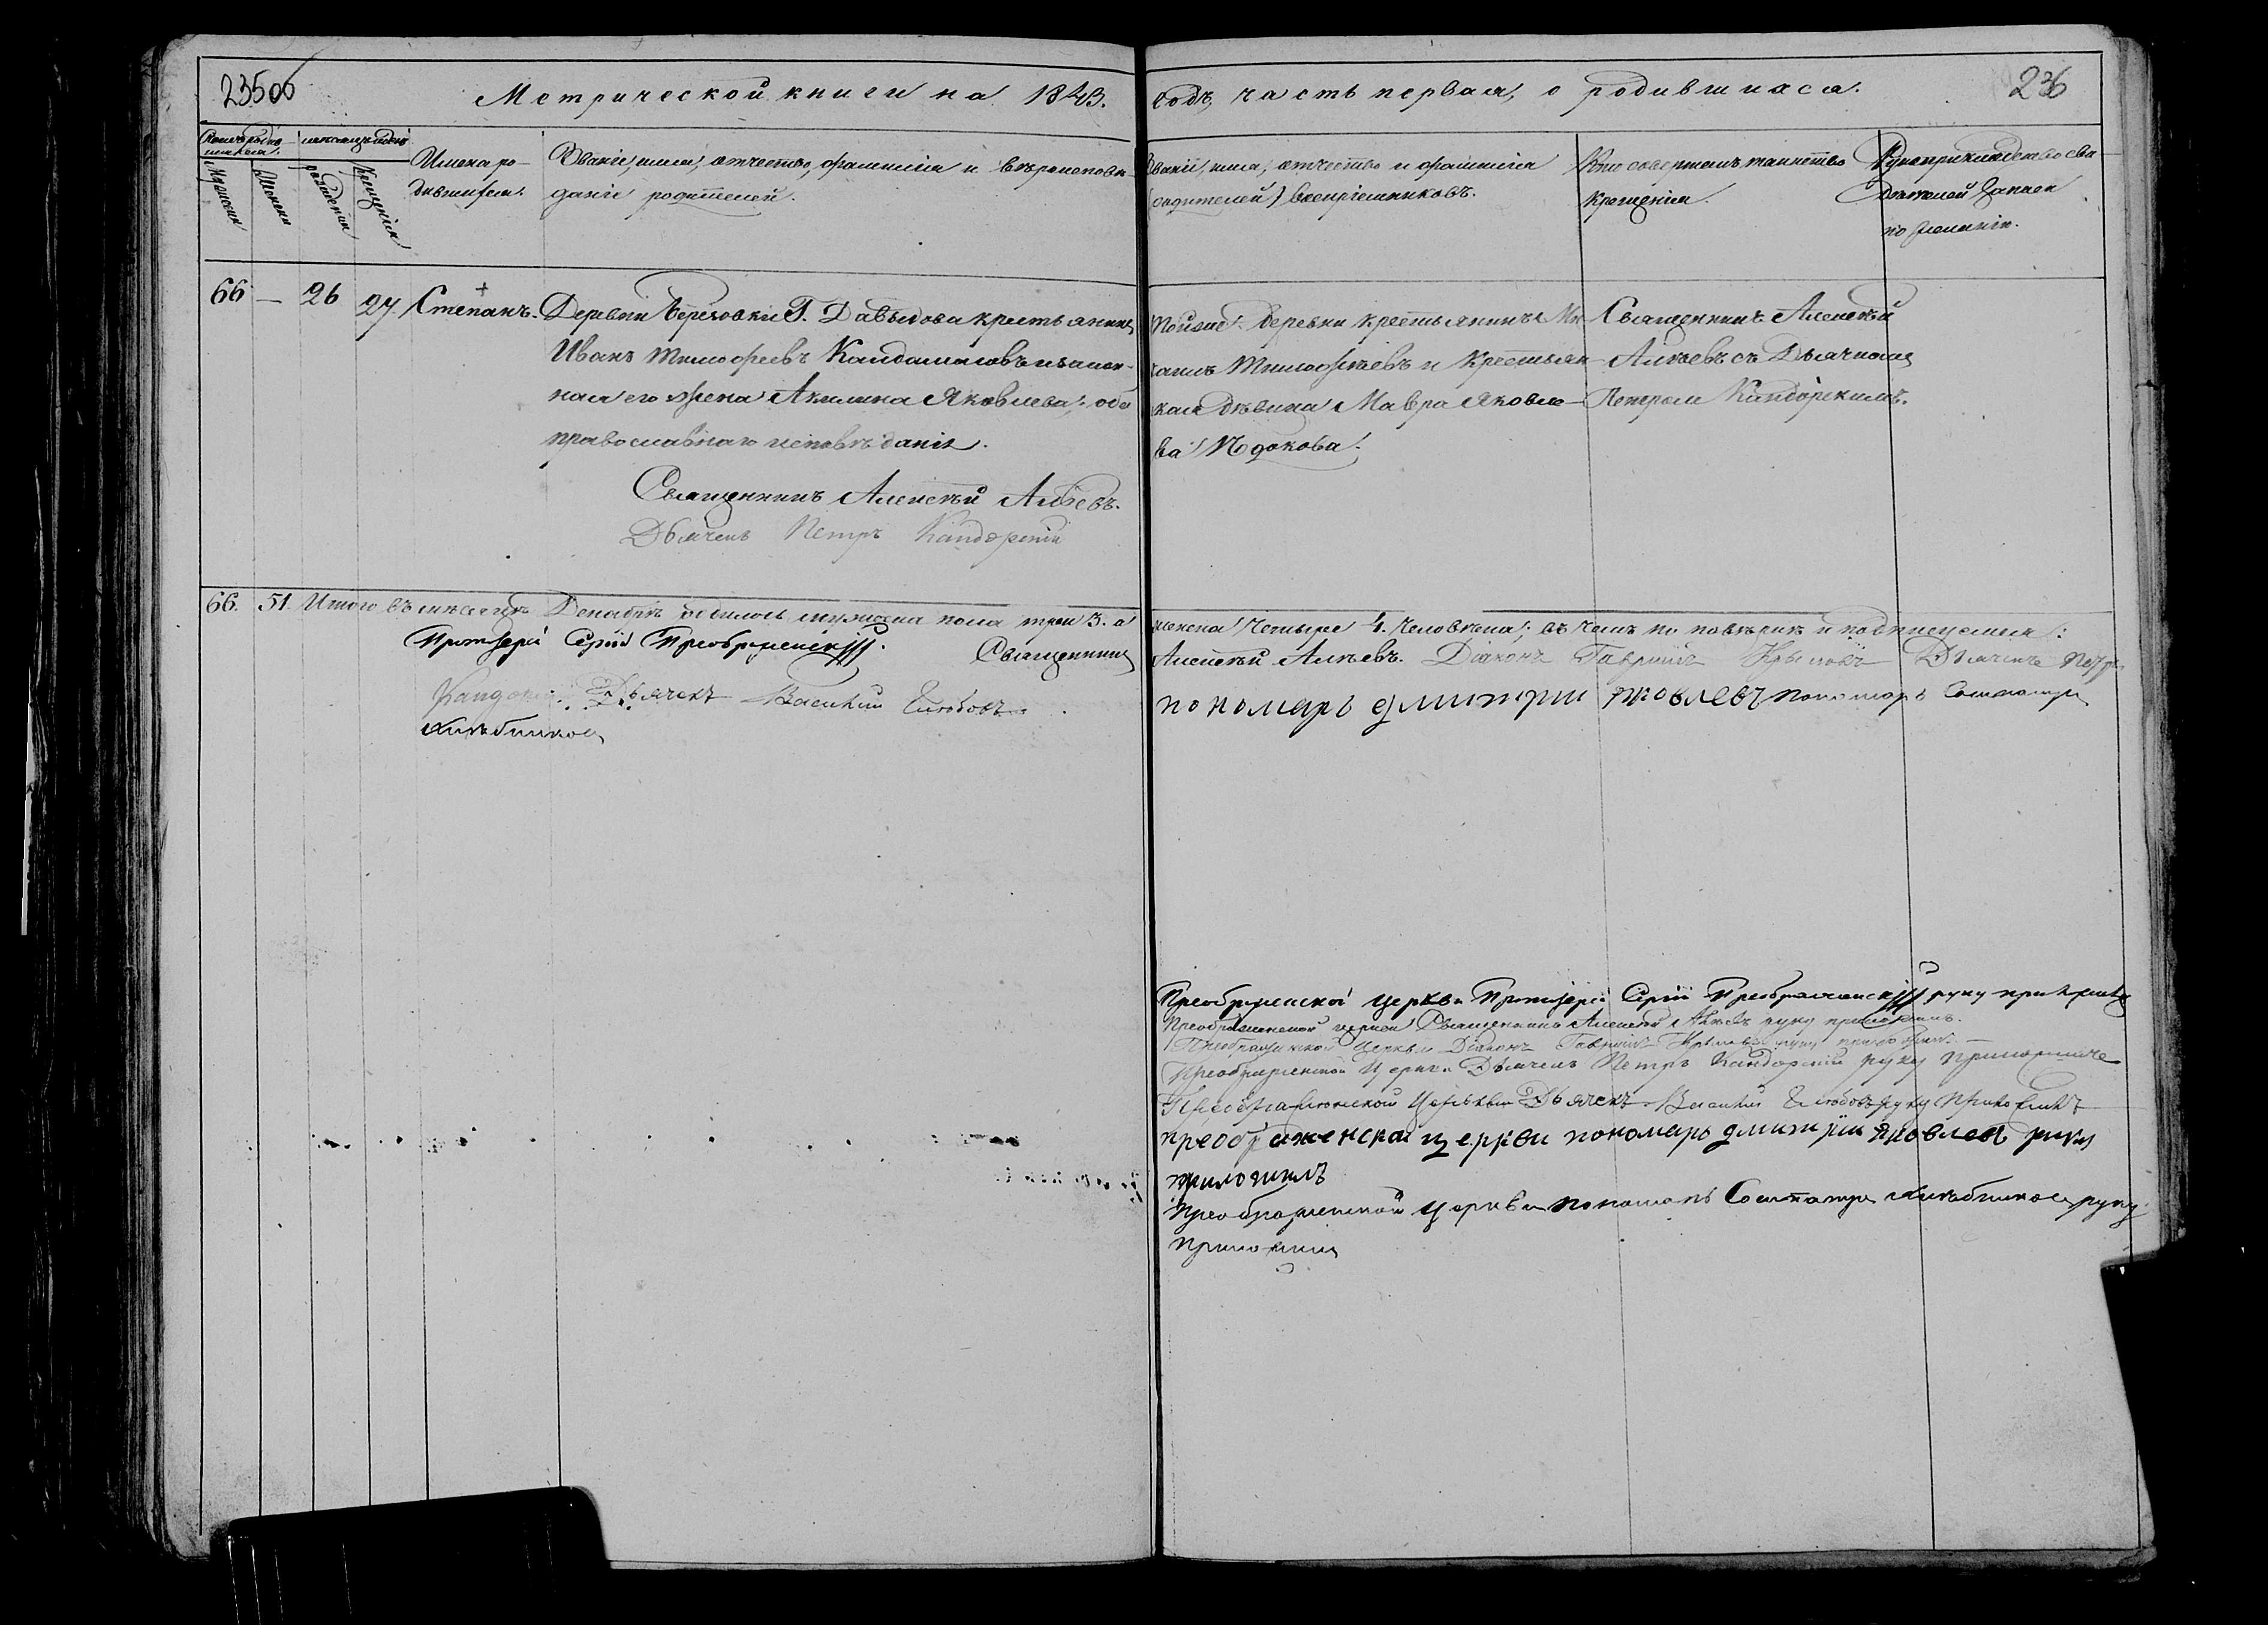 235об
Метрической книги на 1843.
годъ, часть первая, о родившихся.
236
Мѣсяцъ и день
Мужеска
Женска
рожденія
крещенія
Имена ро-
дившихся.
Званіе, имя, отчество, фамилія и вѣроисповѣ-
даніе родителей.
Званіе, имя, отчество и фамилія
(родителей) воспріемниковъ.
Кто совершалъ таинство
крещенія.
Рукоприкладство сви-
дѣтелей записи
по желанію.
66 — 26 27. Степанъ.
Деревни Березовки Г. Давыдова крестьянинъ
Иванъ Тимофеевъ и закон-
ная его жена Акилина Яковлева, оба
православнаго исповѣданія.
Священникъ Алексѣй Алѣевъ.
Дьячекъ Петръ Кандорскій
Тойже деревни крестьянинъ Ми-
хаилъ Тимофѣевъ и крестьян-
кая дѣвица Мавра Яковле-
ва
Священникъ Алексѣй
Алѣевъ съ Дьячкомъ
Петромъ Кандорскимъ.
66. 51. Итого въ мѣсяцѣ Декабрѣ родилось мужеска пола три 3. а
женска четыре 4. человѣка; въ чемъ по повѣркѣ и подписуемся:
Протоіерей Сергій Преображенскій. Священникъ
Алексѣй Алѣевъ. Діаконъ Гавріилъ Крыловъ Дьячекъ Петръ
Дьячекъ Василій
пономарь дмитрии яковлевъ пономарь
Преображенской церкви Протоіерей Сергій Преображенскій руку приложилъ
Преображенской церкви Священникъ Алексѣй Алѣевъ руку приложилъ.
Преображенской церкви Діаконъ Гавріилъ Крыловъ руку приложилъ.
Преображенской церкви Дьячекъ Петръ Кандорскій руку приложилъ
Преображенской церкви Дьячекъ Василій руку приложилъ
преображенской церкви пономарь дмитрии яковлевъ руку
приложилъ
Преображенской церкви пономарь руку
приложилъ